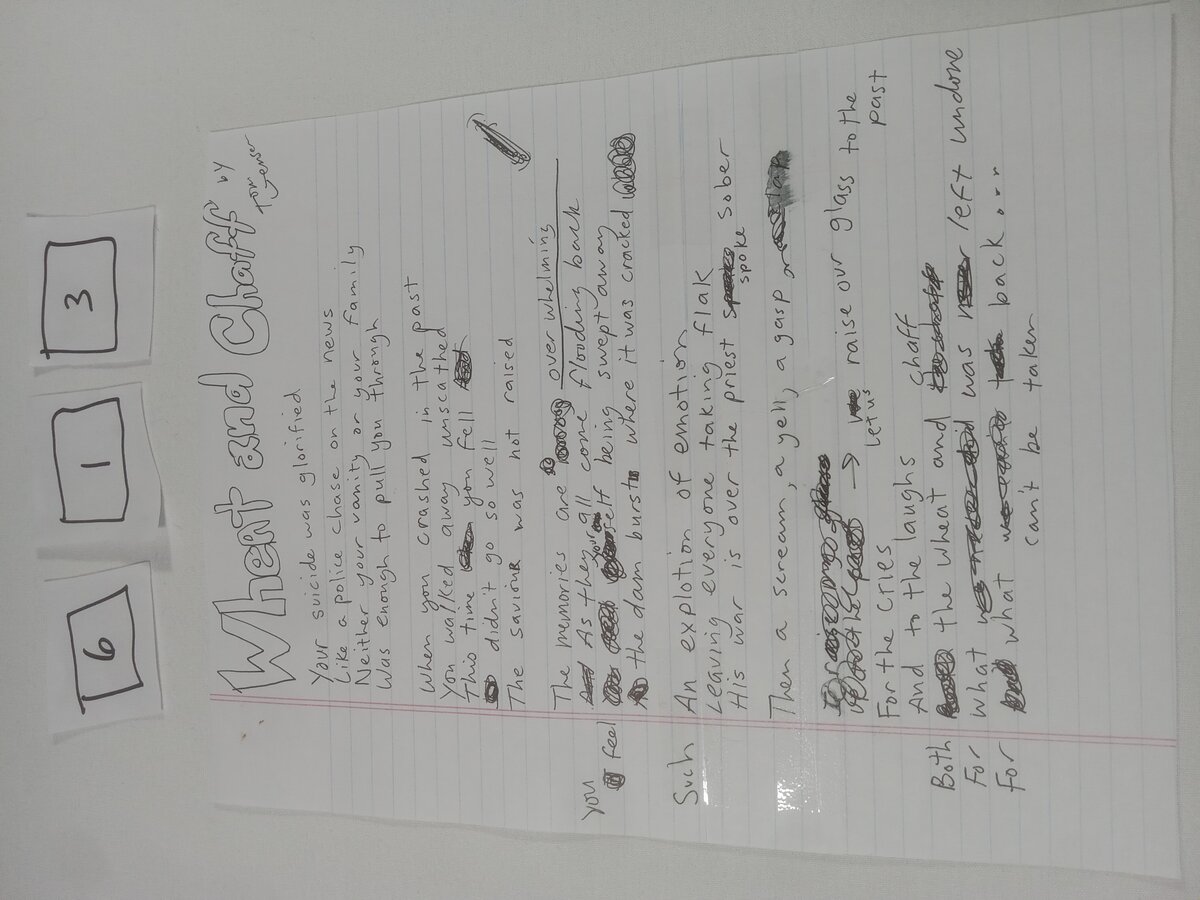 6
1
3
Wheat and Chaff by
Tom Jenser
Your suicide was glorified
Like a police chase on the news
Neither your vanity or your family
Was enough to pull you through
When you crashed in the past
You walked away unscathed
This time you fell
didn't go so well
The savior was not raised
The memories are overwhelming
As they all come flooding back
you feel yourself being swept away
the dam burst where it was cracked
Such An explotion of emotion
Leaving everyone taking flak
His war is over the priest spoke sober
Then a scream, a yell, a gasp
→ let us raise our glass to the past
For the cries
And to the laughs
Both the wheat and chaff
For what was left undone
For what can't be taken back...